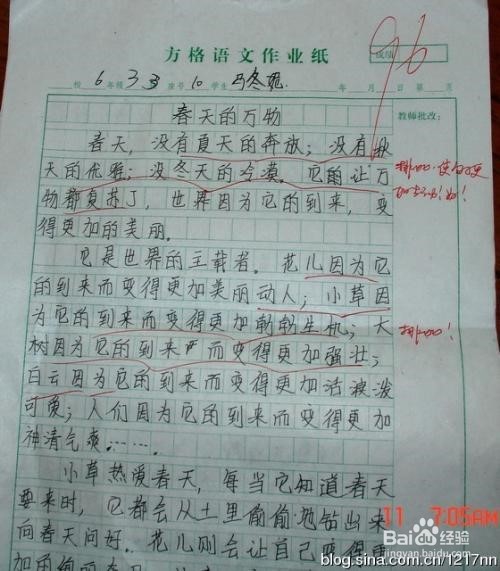 方格语文作业纸
成绩 96
校 6 年级 3 座号 10 学生 冬妮 年 月 日 第 页
教师批改：
春天的万物
春天，没有夏天的奔放；没有秋
天的优雅；没冬天的冷漠。它的让万
物都复苏了，世界因为它的到来，变
得更加的美丽。
它是世界的主载者。花儿因为它
的到来而变得更加美丽动人；小草因
为它的到来而变得更加勃勃生机；大
树因为它的到来而变得更加强壮；
白云因为它的到来而变得更加活泼
可爱；人们因为它的到来而变得更加
神清气爽……
小草热爱春天，每当它知道春天
要来时，它都会从土里偷偷地钻出来
向春天问好。花儿则会让自己变得更
排比句！
11 7:05AM
Baidu经验
jingyan.baidu.com
blog.sina.com.cn/1217nn